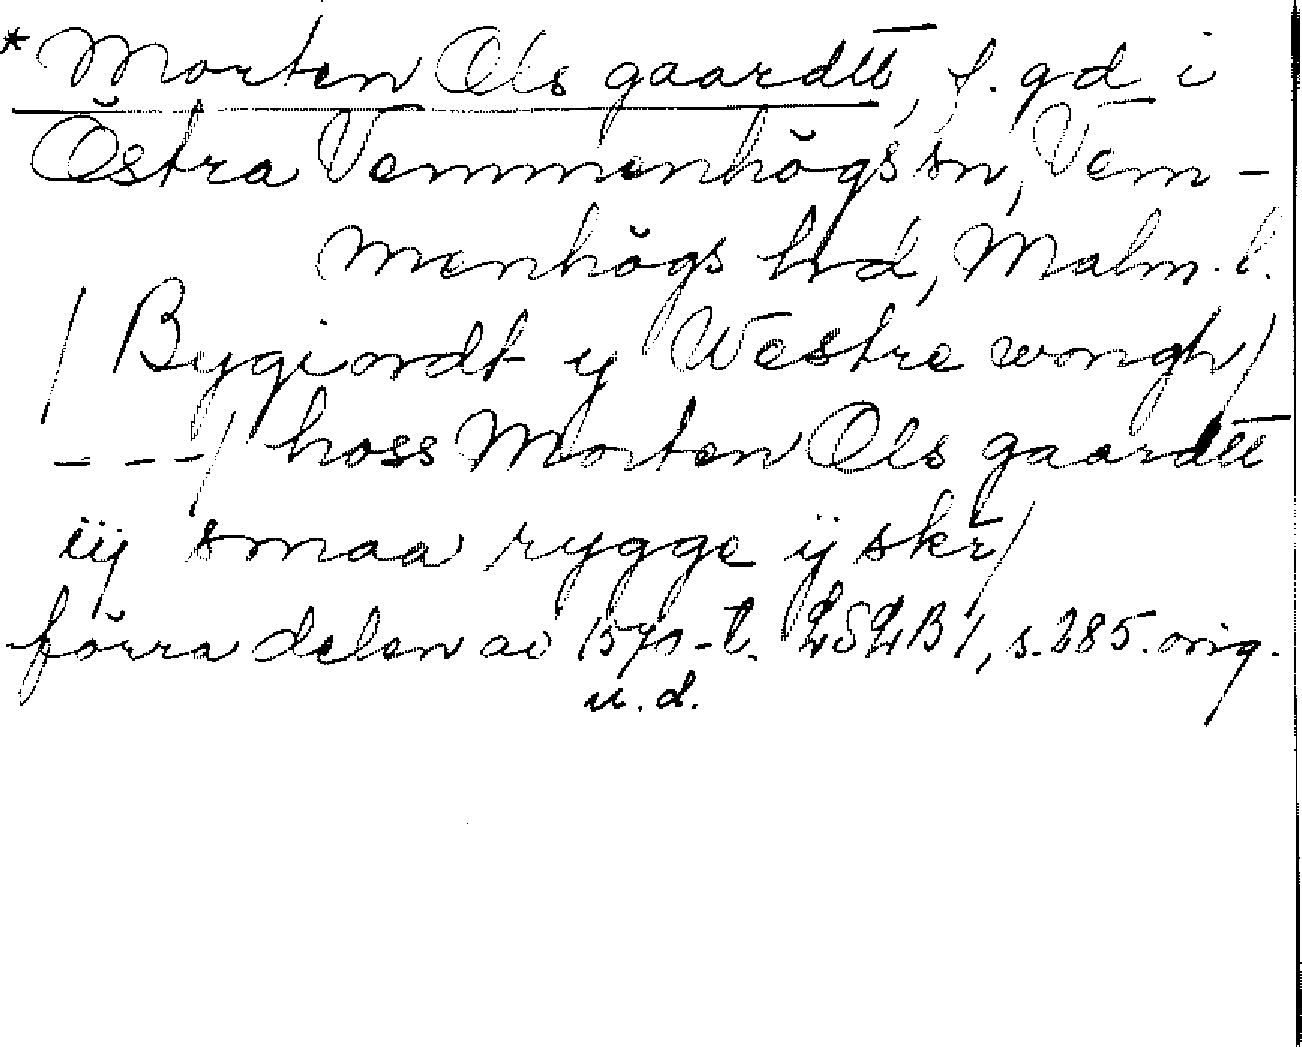 *Morten Ols gaardtt, f. gd i
Östra Vemmenhögs sn, Vem-
menhögs hrd, Malm. l.
/ Bygiordt y Westre wongh/
- - -/ hoss Morten Ols gaardtt
iij smaa rygge ij skr/
förra delen av 1570-t. LSLB1, s. 285. orig.
u. d.